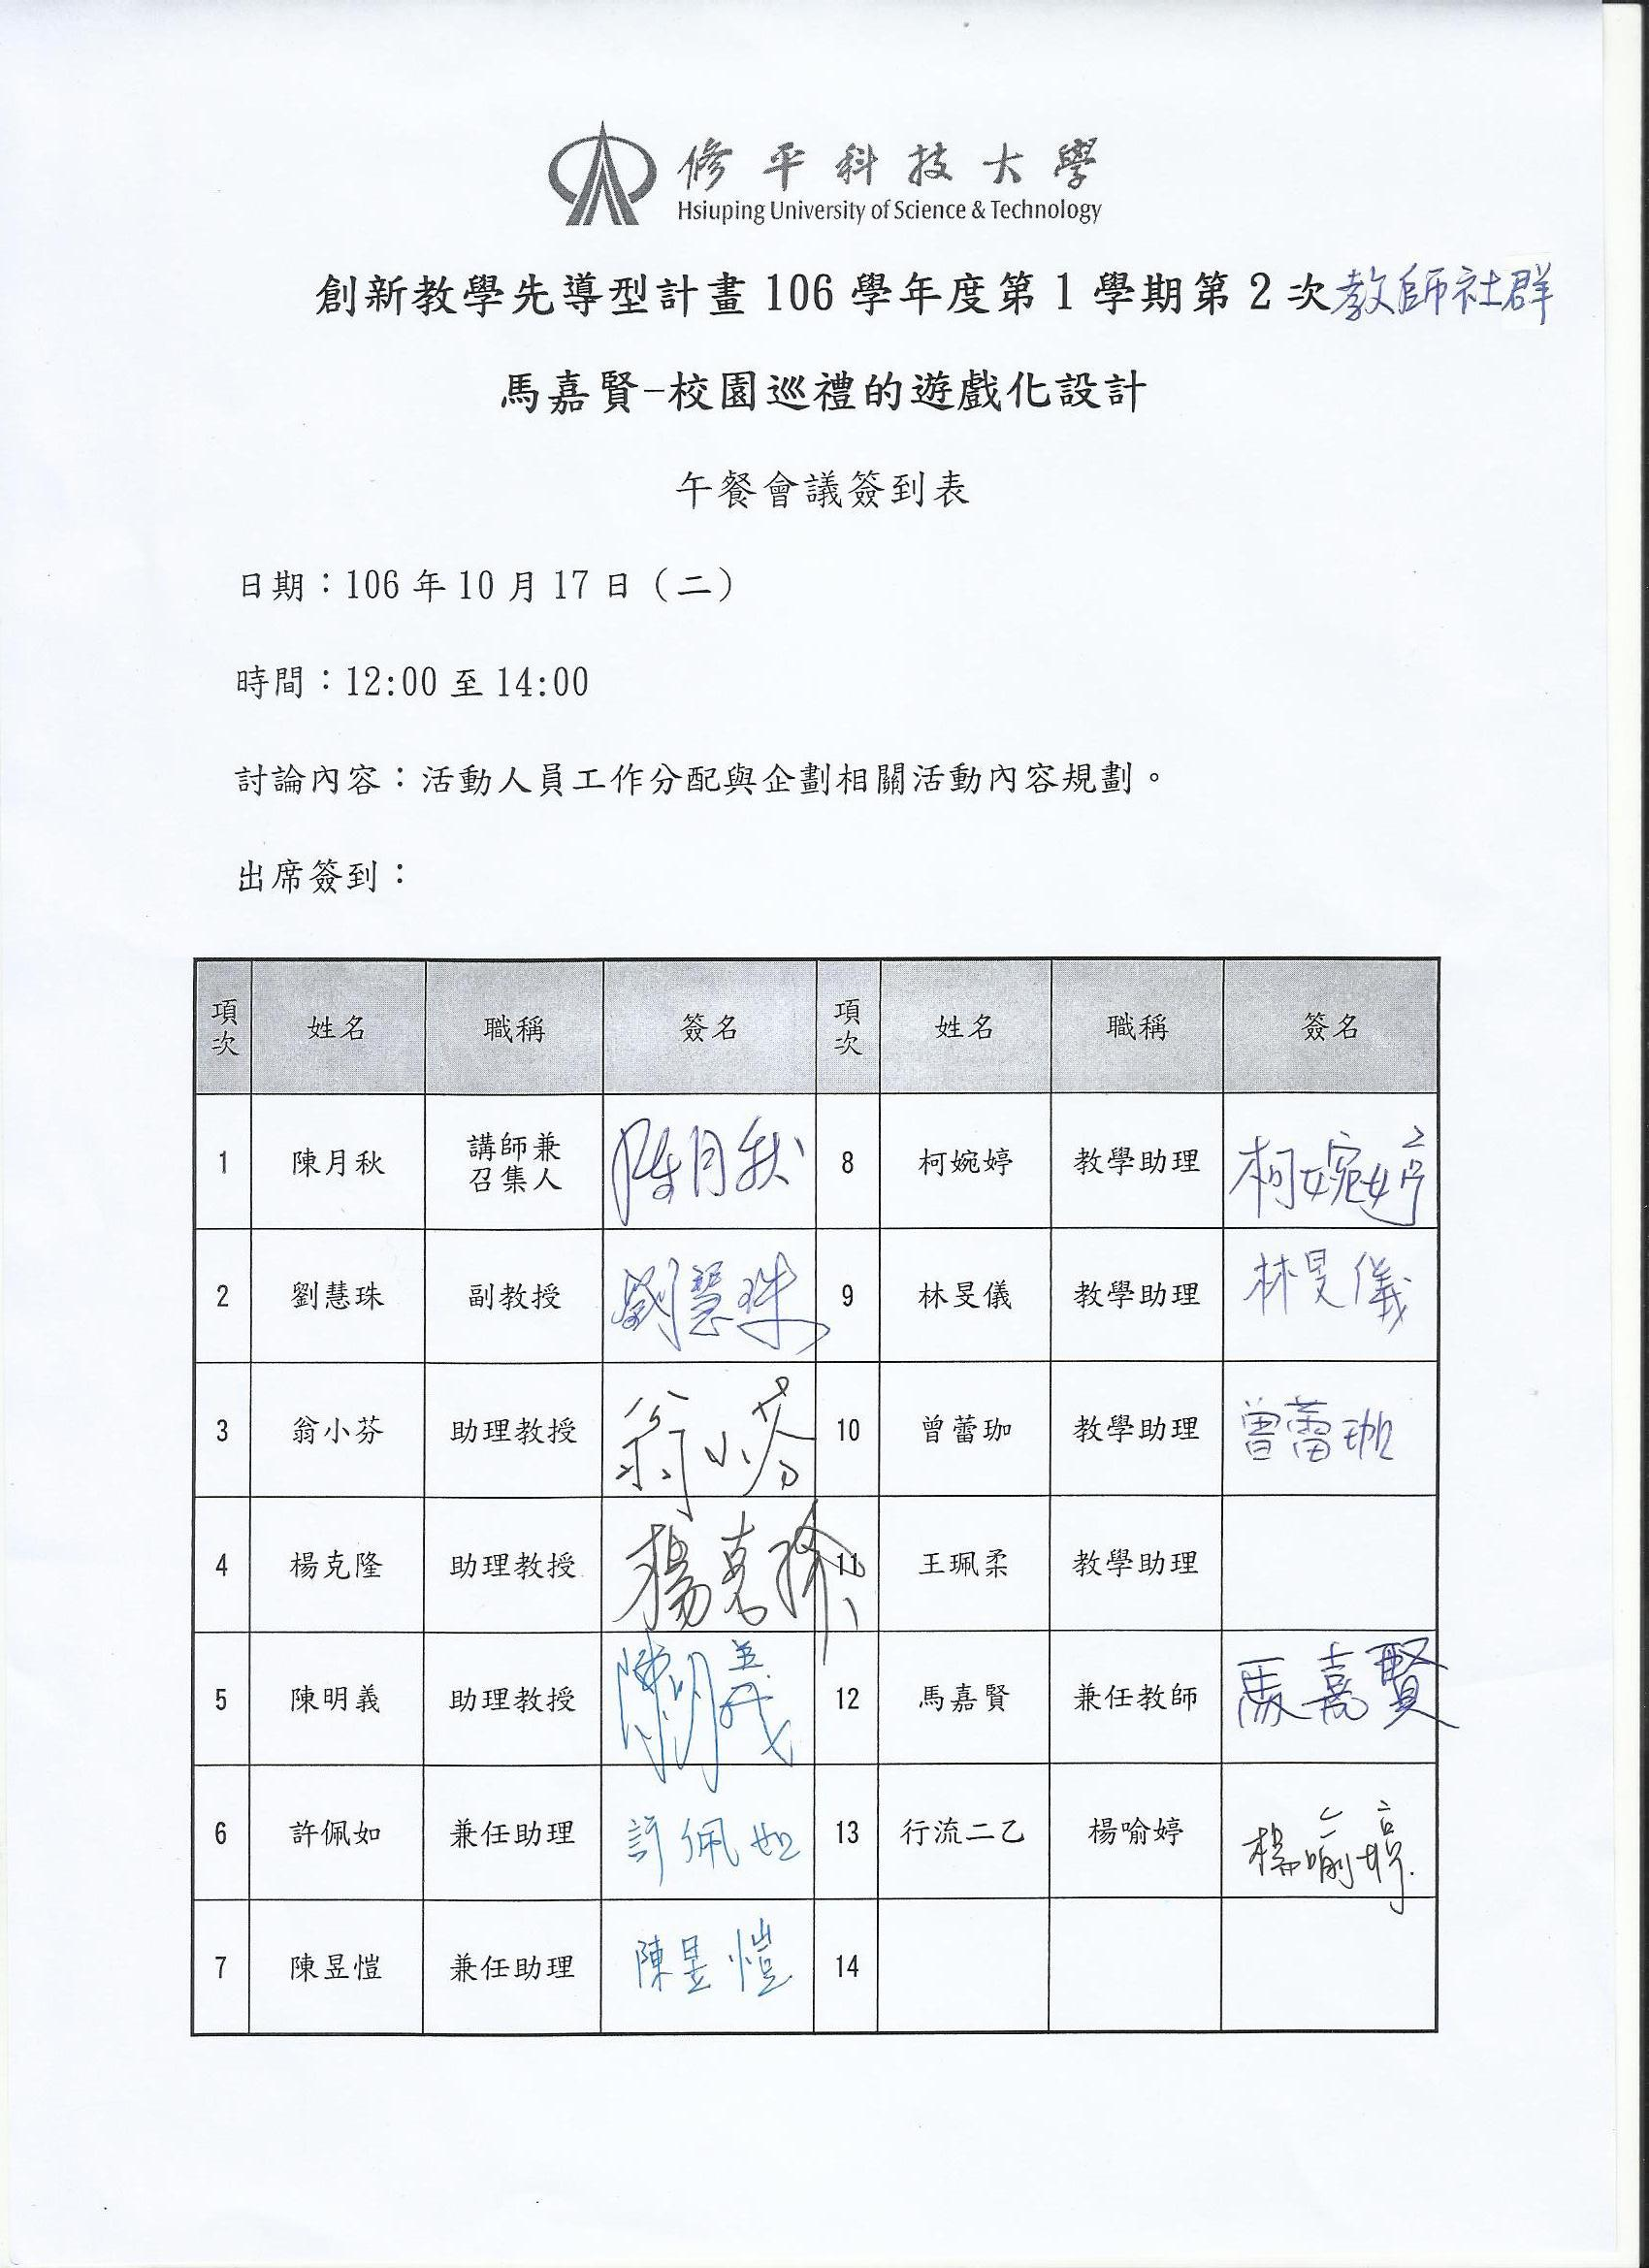 修平科技大學
Hsiuping University of Science & Technology
創新教學先導型計畫 106 學年度第 1 學期第 2 次教師社群
馬嘉賢-校園巡禮的遊戲化設計
午餐會議簽到表
日期：106 年 10 月 17 日（二）
時間：12:00 至 14:00
討論內容：活動人員工作分配與企劃相關活動內容規劃。
出席簽到：
項次 姓名 職稱 簽名 項次 姓名 職稱 簽名
1 陳月秋 講師兼召集人 陳月秋 8 柯婉婷 教學助理 柯婉婷
2 劉慧珠 副教授 劉慧珠 9 林旻儀 教學助理 林旻儀
3 翁小芬 助理教授 翁小芬 10 曾蕾珈 教學助理 曾蕾珈
4 楊克隆 助理教授 楊克隆 11 王珮柔 教學助理
5 陳明義 助理教授 陳明義 12 馬嘉賢 兼任教師 馬嘉賢
6 許佩如 兼任助理 許佩如 13 行流二乙 楊喻婷 楊喻婷
7 陳昱愷 兼任助理 陳昱愷 14